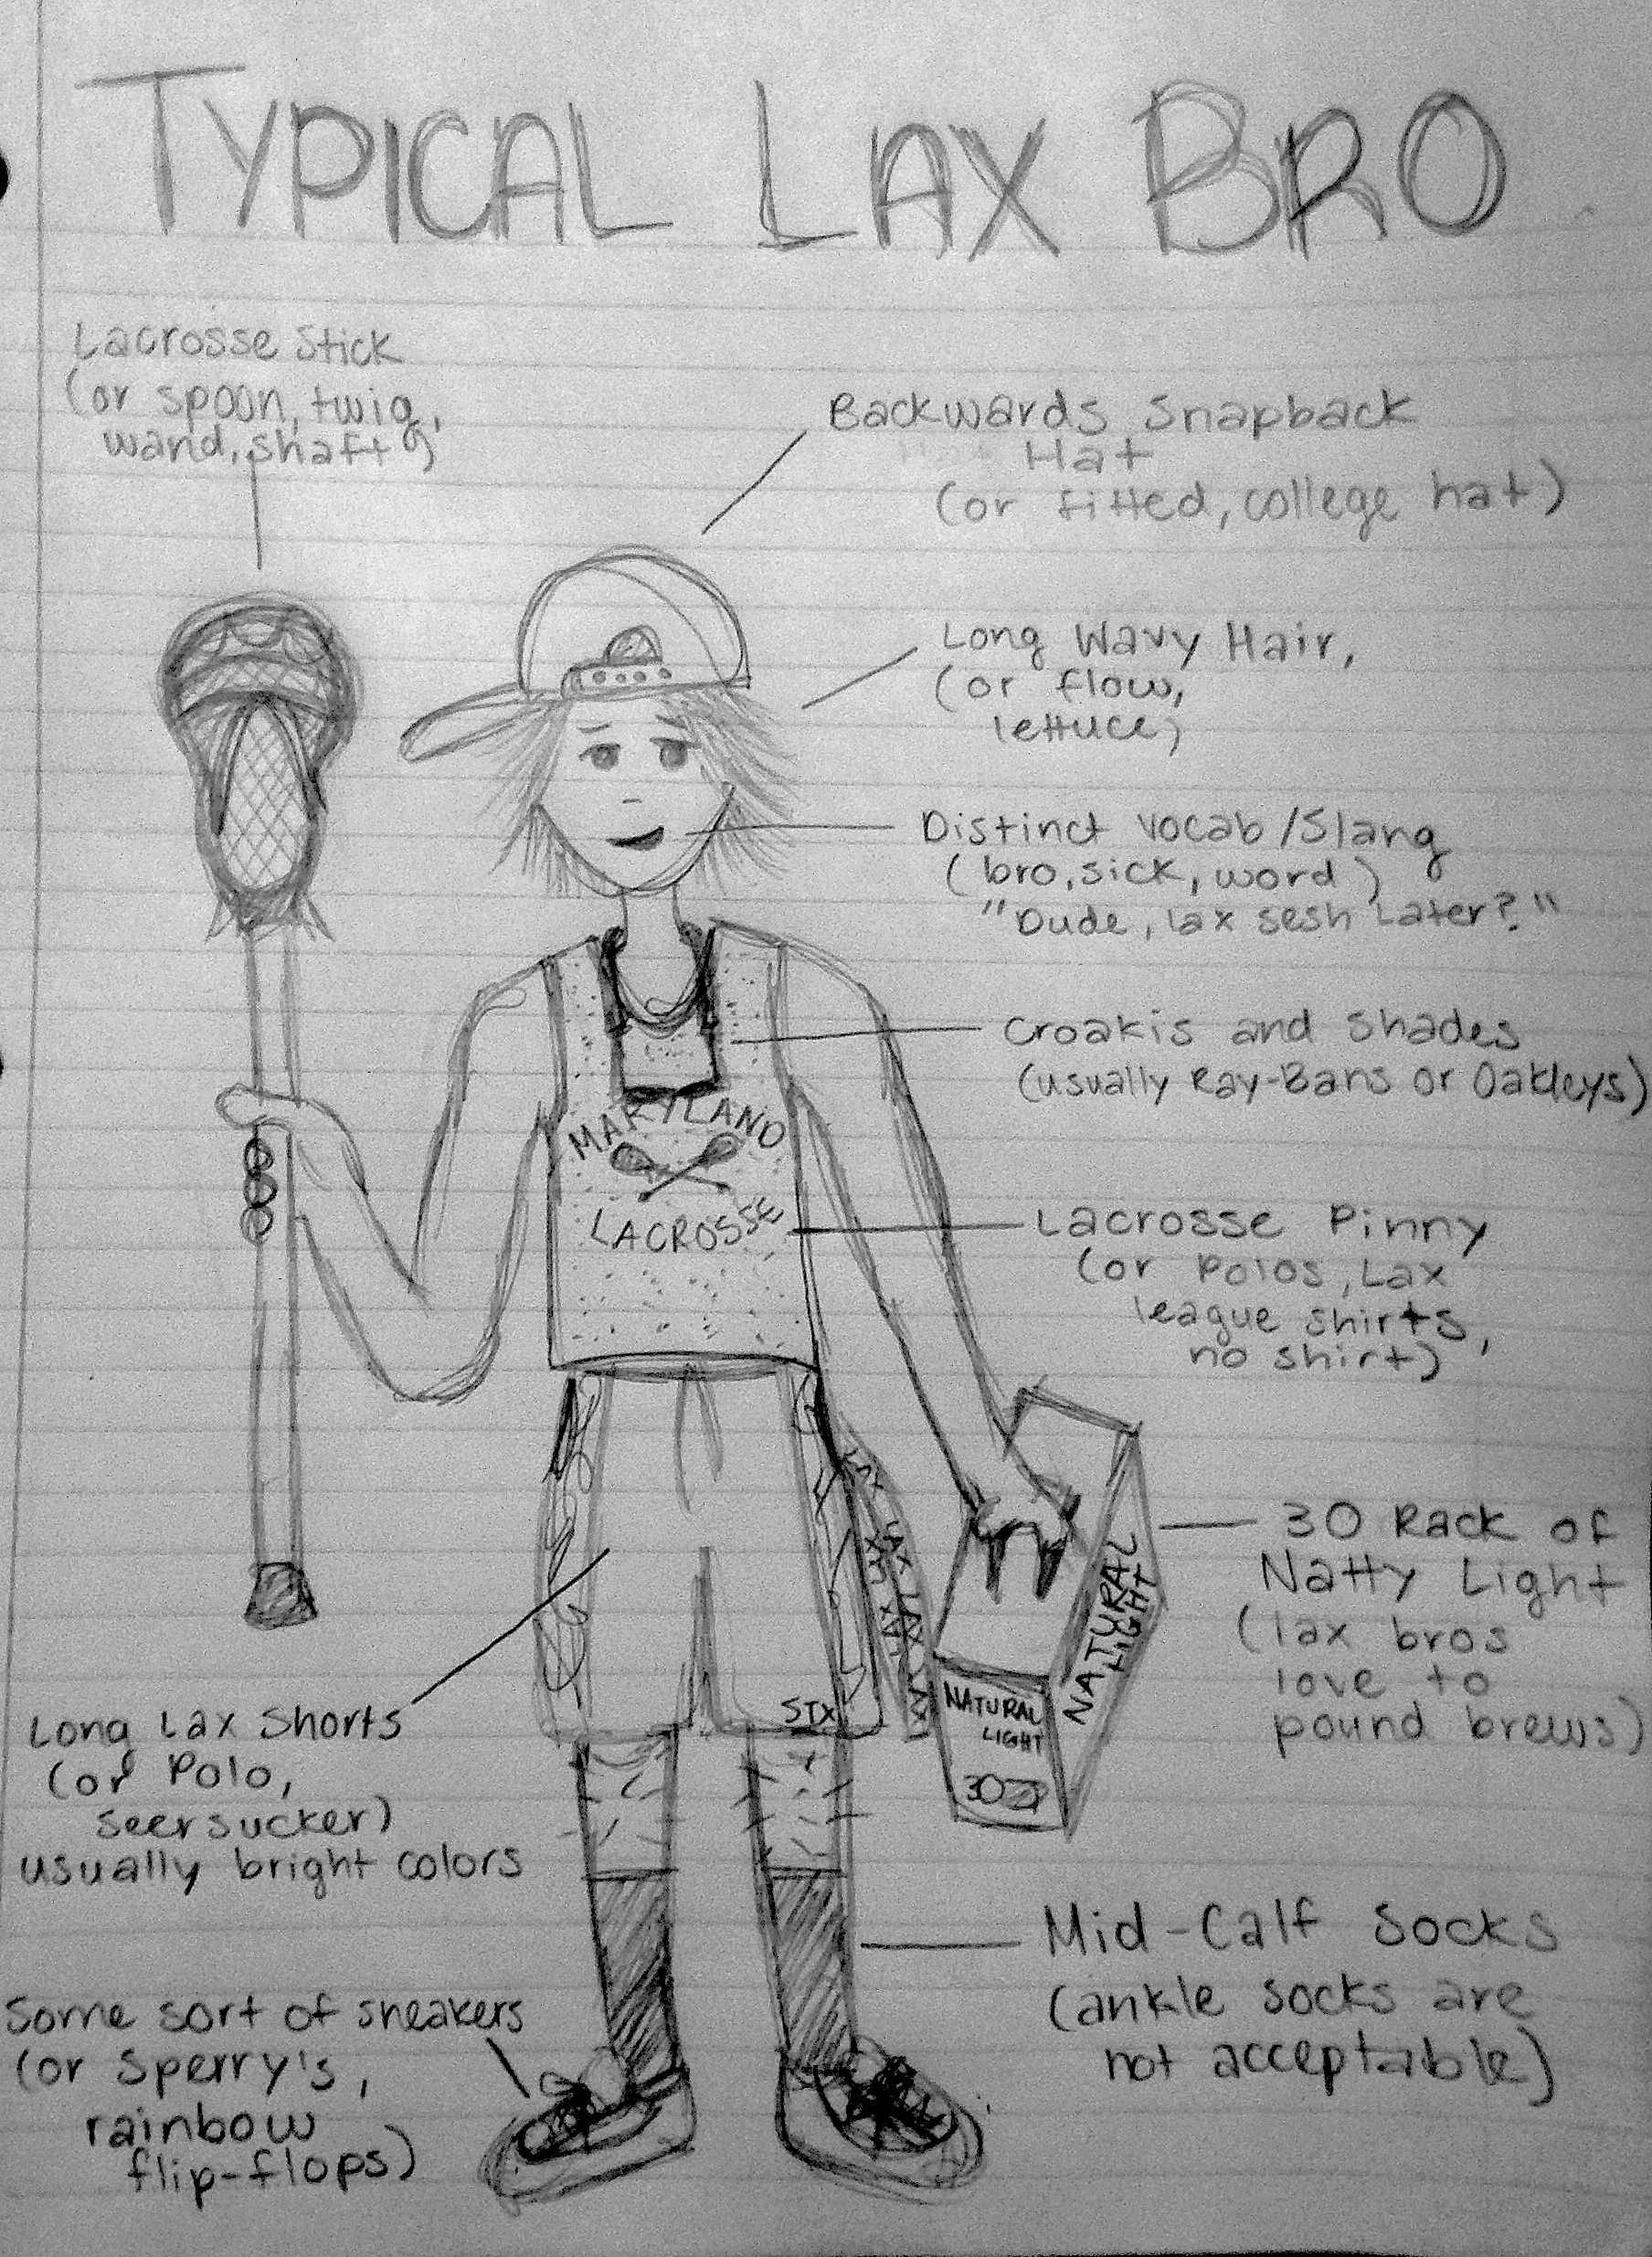 TYPICAL LAX BRO
Lacrosse Stick
(or spoon, twig,
wand, shaft)
Backwards Snapback
Hat
(or fitted, college hat)
Long Wavy Hair,
(or flow,
lettuce)
Distinct vocab/Slang
(bro, sick, word)
"Dude, lax sesh Later?"
Croakis and Shades
(usually Ray-Bans or Oakleys)
MARYLAND
LACROSSE
Lacrosse Pinny
(or Polos, Lax
league shirts,
no shirt)
LAX LAX LAX LAX
LAX LAX
30 Rack of
Natty Light
(lax bros
love to
pound brews)
NATURAL
LIGHT
NATURAL
LIGHT
30
STX
Long Lax Shorts
(or Polo,
seersucker)
usually bright colors
Mid-Calf Socks
(ankle socks are
not acceptable)
Some sort of sneakers
(or Sperry's,
rainbow
flip-flops)